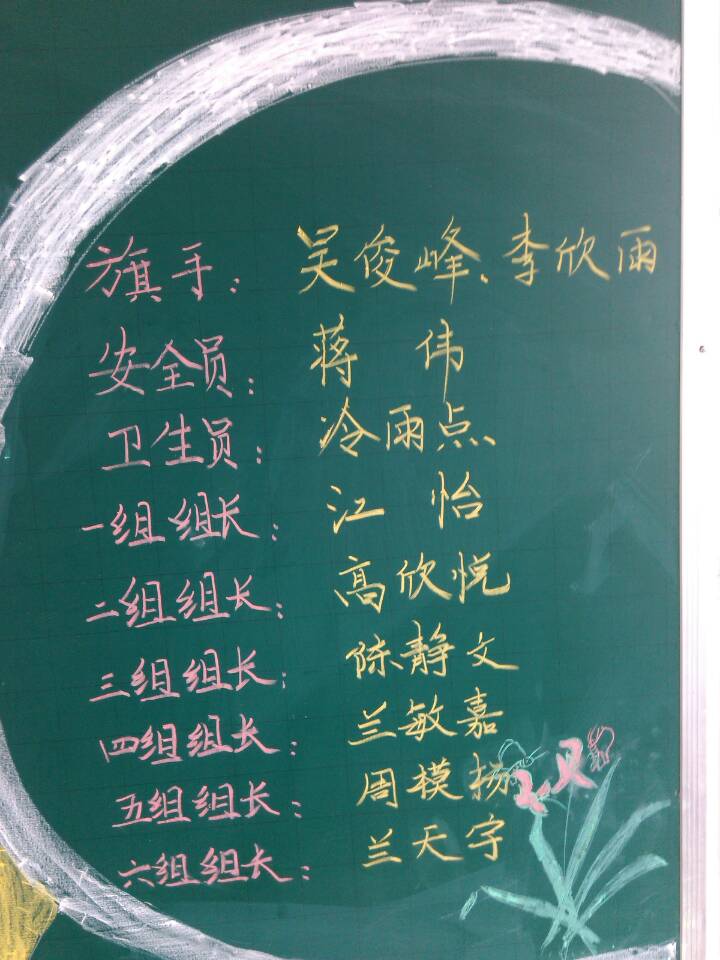 旗手：吴俊峰、李欣雨
安全员：蒋 伟
卫生员：冷雨点
一组组长：江 怡
二组组长：高欣悦
三组组长：陈静文
四组组长：兰敏嘉
五组组长：周模扬
六组组长：兰天宇